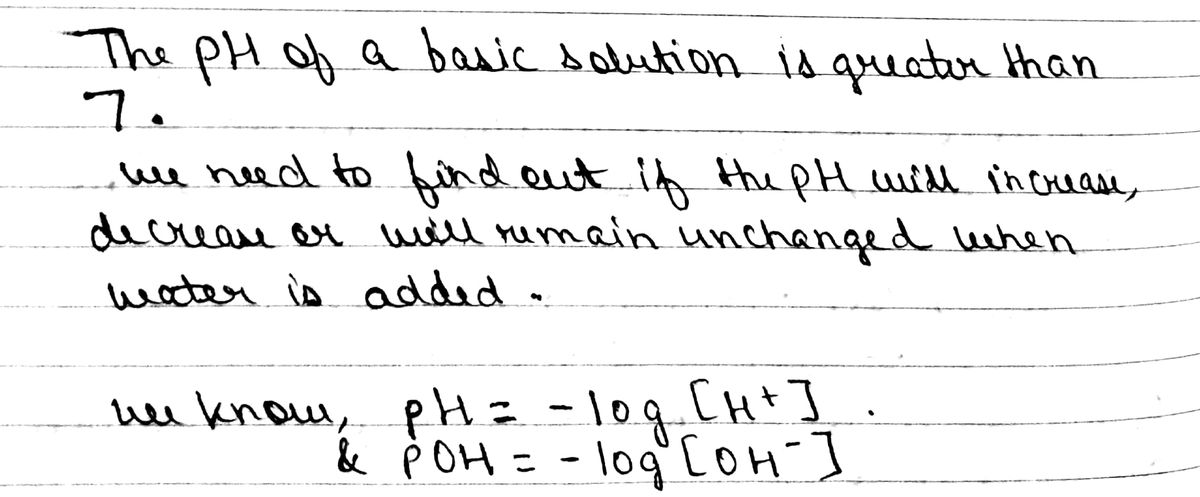 The pH of a basic solution is greater than
7.
we need to find out if the pH will increase,
decrease or will remain unchanged when
water is added.
we know, pH = -log [H+].
& POH = -log [OH-]